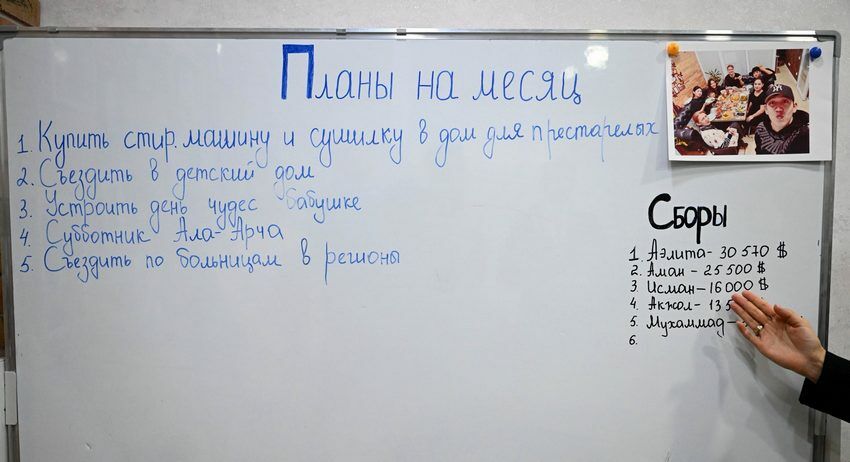 Планы на месяц
1. Купить стир. машину и сушилку в дом для престарелых
2. Съездить в детский дом
3. Устроить день чудес бабушке
4. Субботник Ала-Арча
5. Съездить по больницам в регионы
Сборы
1. Аэлита - 30 570 $
2. Аман - 25 500 $
3. Исман - 16 000 $
4. Акжол - 13 5
5. Мухаммад -
6.